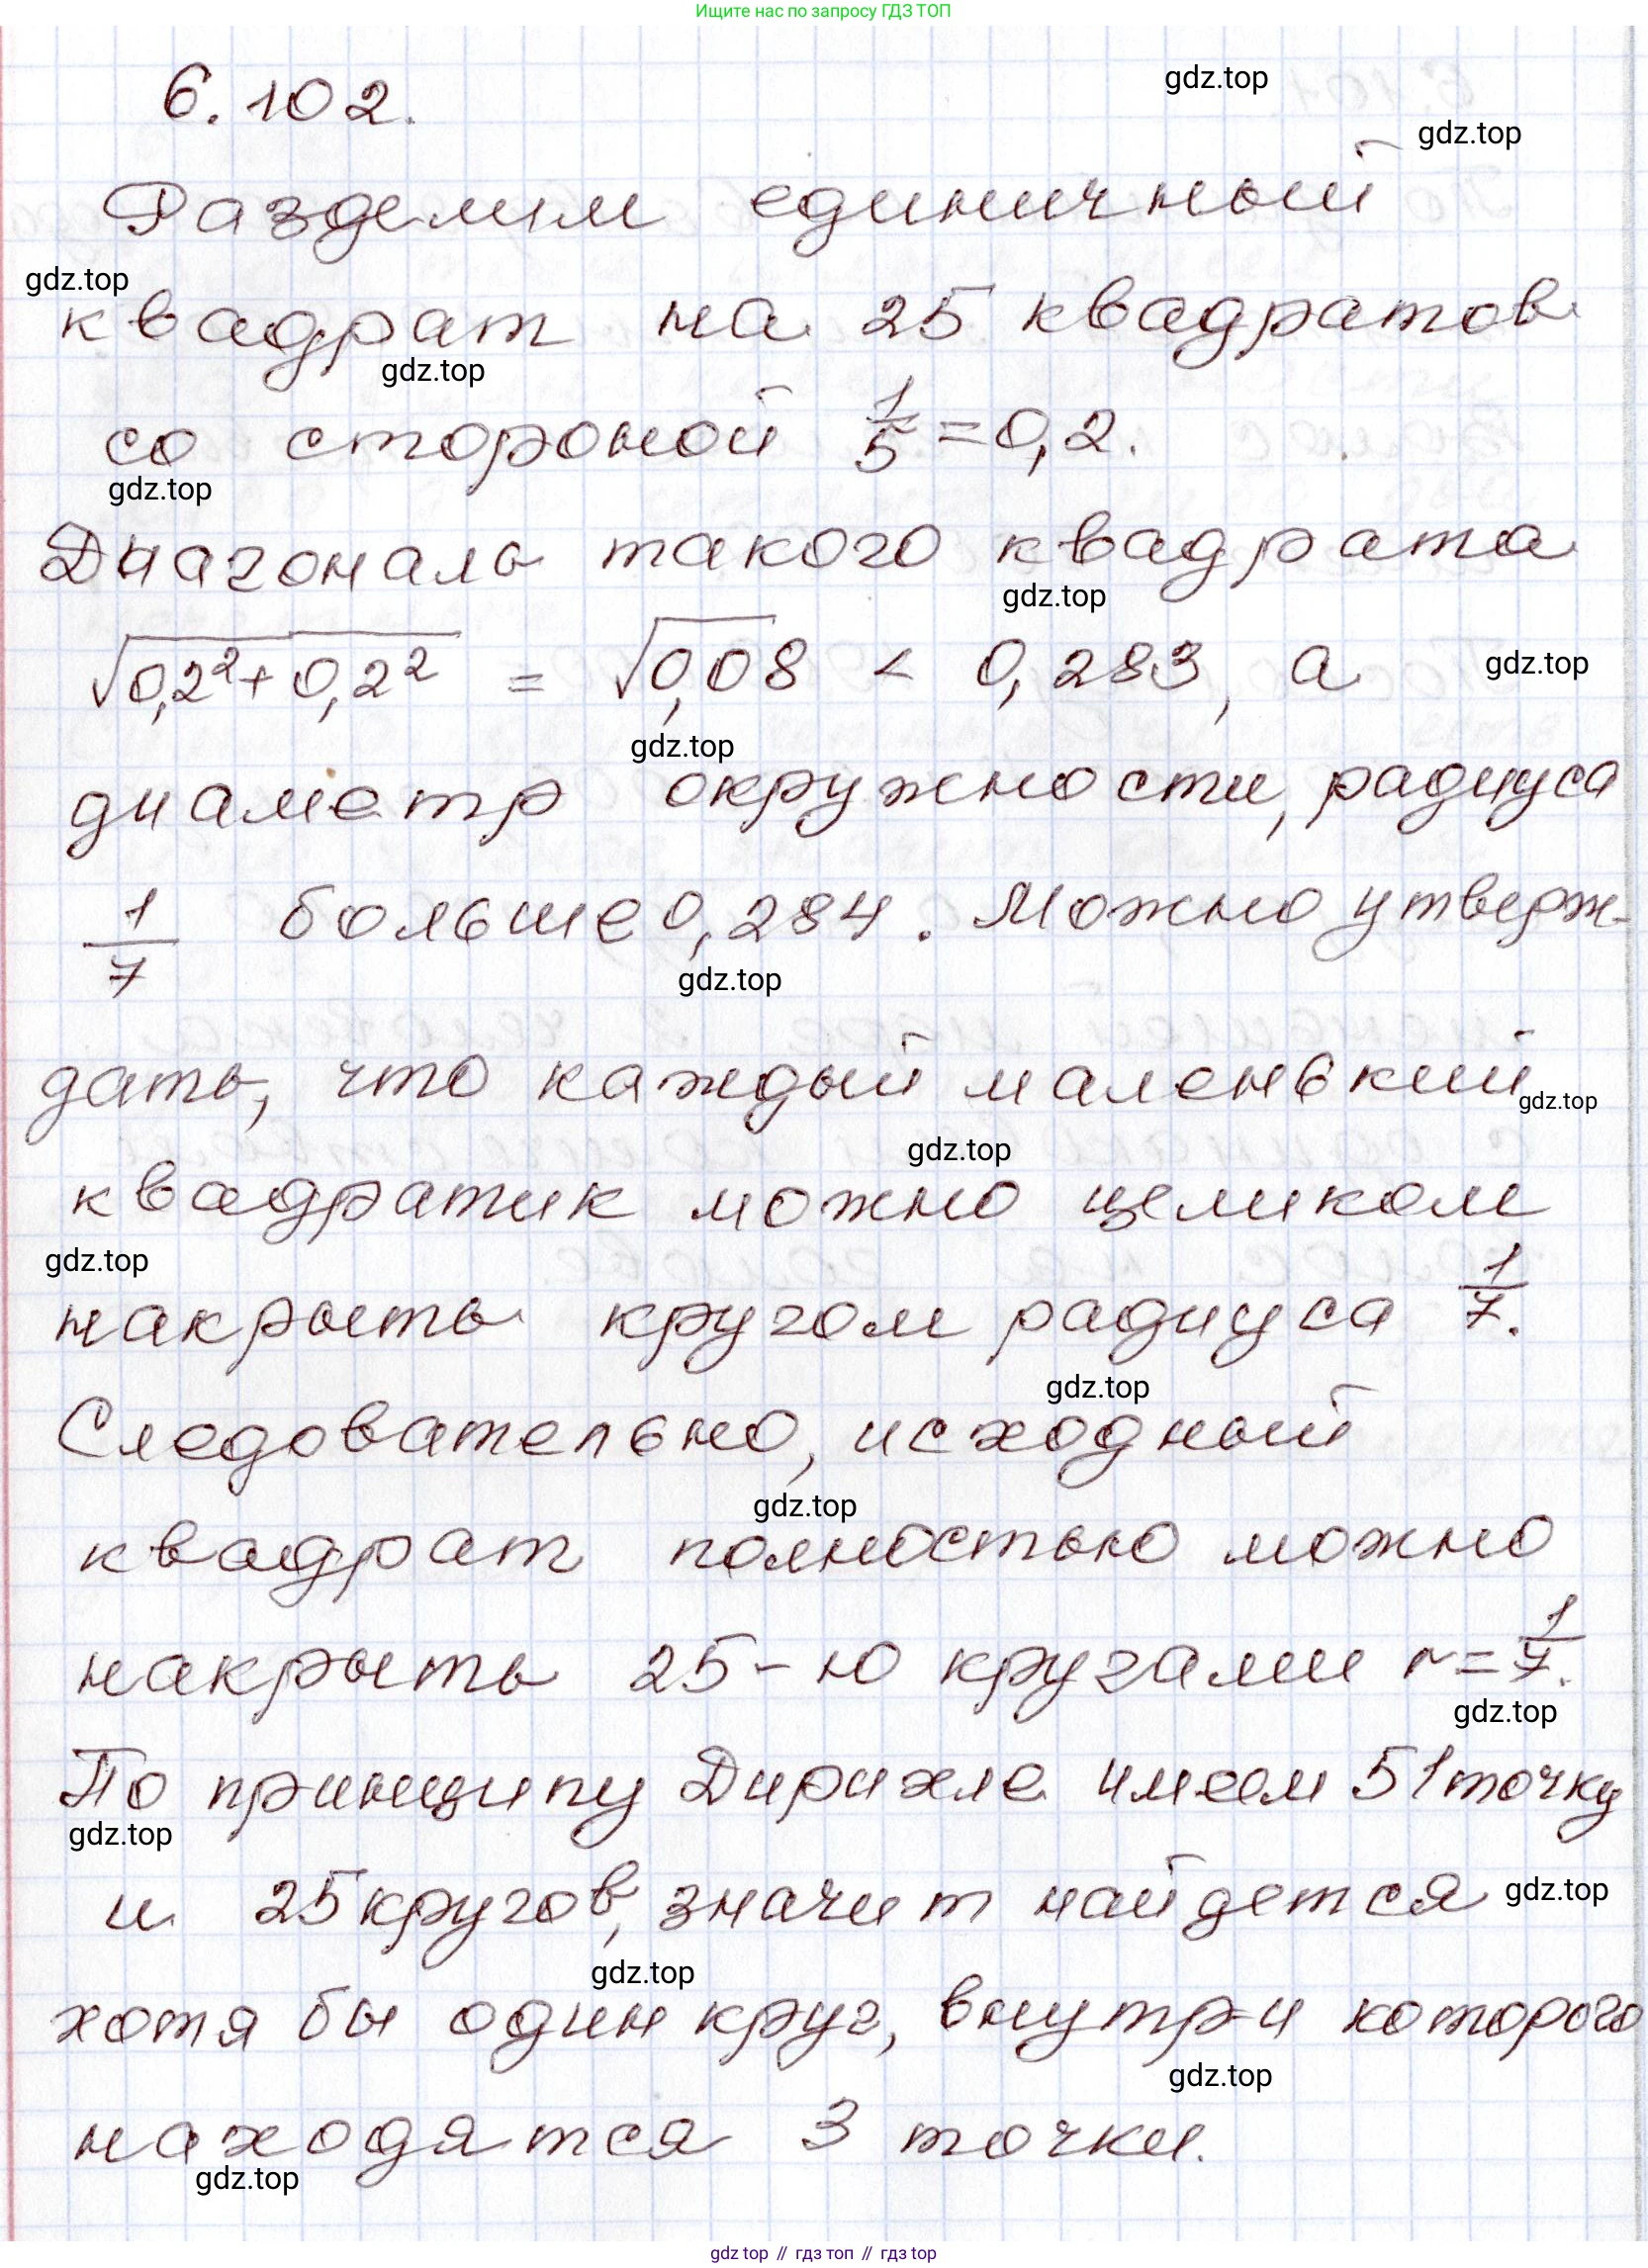 Ищите нас по запросу ГДЗ ТОП
6.102.
gdz.top
gdz.top
Разделим единичный
gdz.top
квадрат на 25 квадратов
gdz.top
со стороной 1/5 = 0,2.
gdz.top
Диагональ такого квадрата
gdz.top
√(0,2² + 0,2²) = √0,08 < 0,283, а
gdz.top
gdz.top
диаметр окружности, радиуса
1/7 больше 0,284. Можно утверж-
gdz.top
дать, что каждый маленький
gdz.top
gdz.top
квадратик можно целиком
gdz.top
накрыть кругом радиуса 1/7.
gdz.top
Следовательно, исходный
gdz.top
квадрат полностью можно
накрыть 25-ю кругами r = 1/7.
gdz.top
По принципу Дирихле имеем 51 точку
gdz.top
и 25 кругов, значит найдется
gdz.top
gdz.top
хотя бы один круг, внутри которого
gdz.top
находятся 3 точки.
gdz.top
gdz top // гдз топ // gdz top